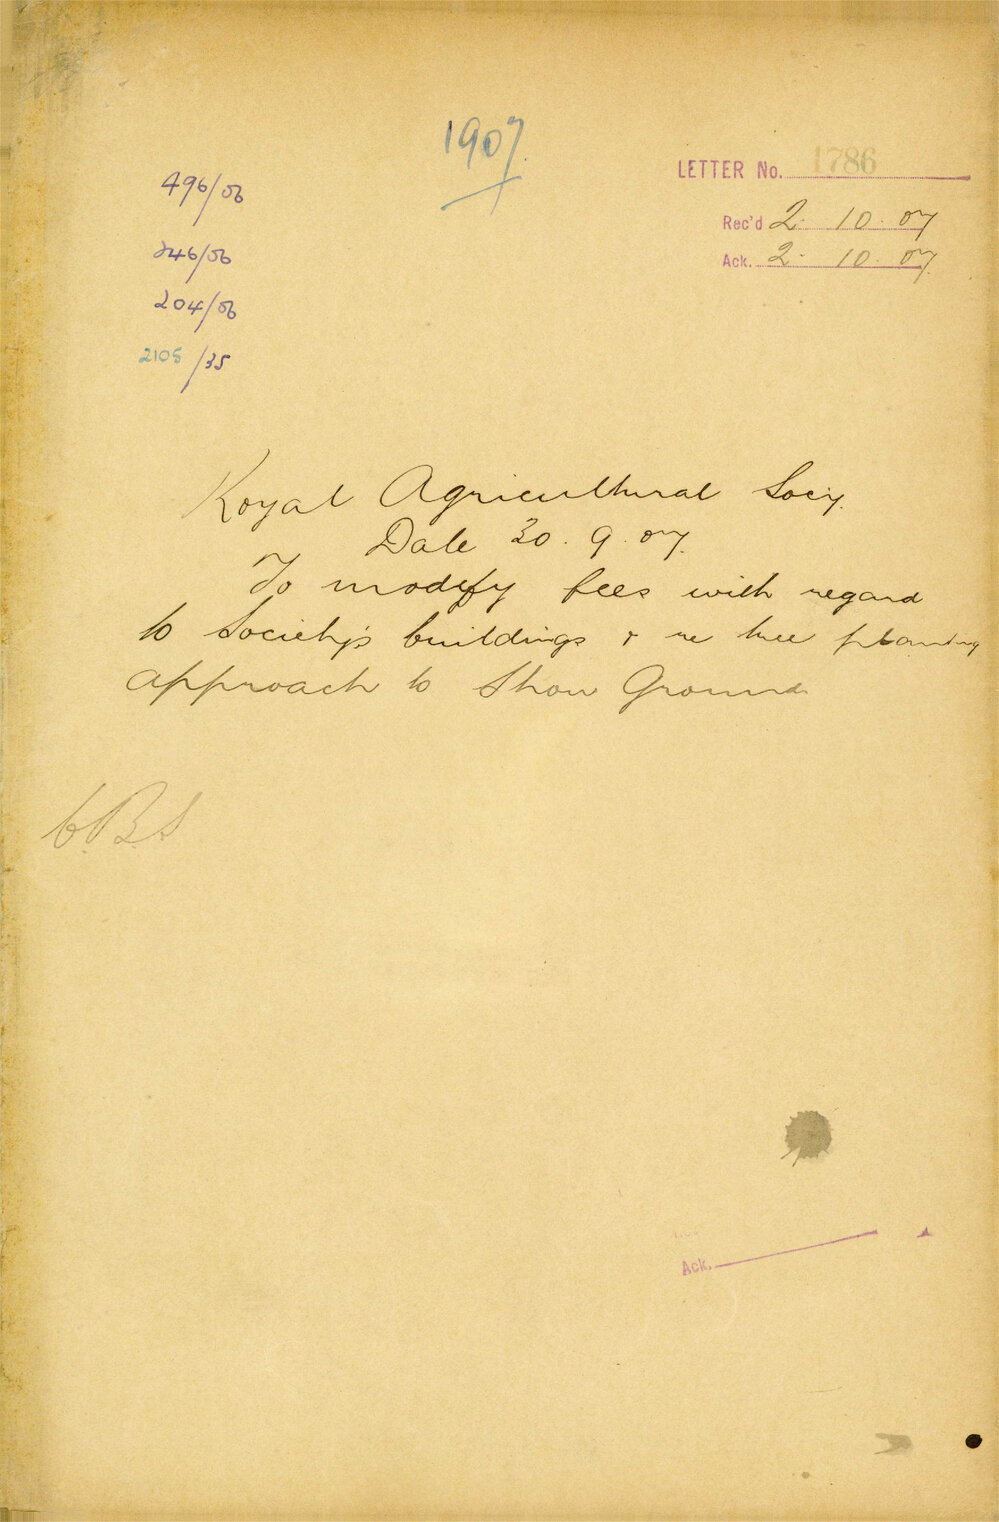 1907
LETTER No. 1786
Rec'd 2. 10. 07
Ack. 2. 10. 07
496/06
246/06
204/06
2105/35
Royal Agricultural Socy.
Date 30. 9. 07.
To modify fees with regard
to Society's buildings & re tree planting
approach to Show Ground
C.B.S
Ack.